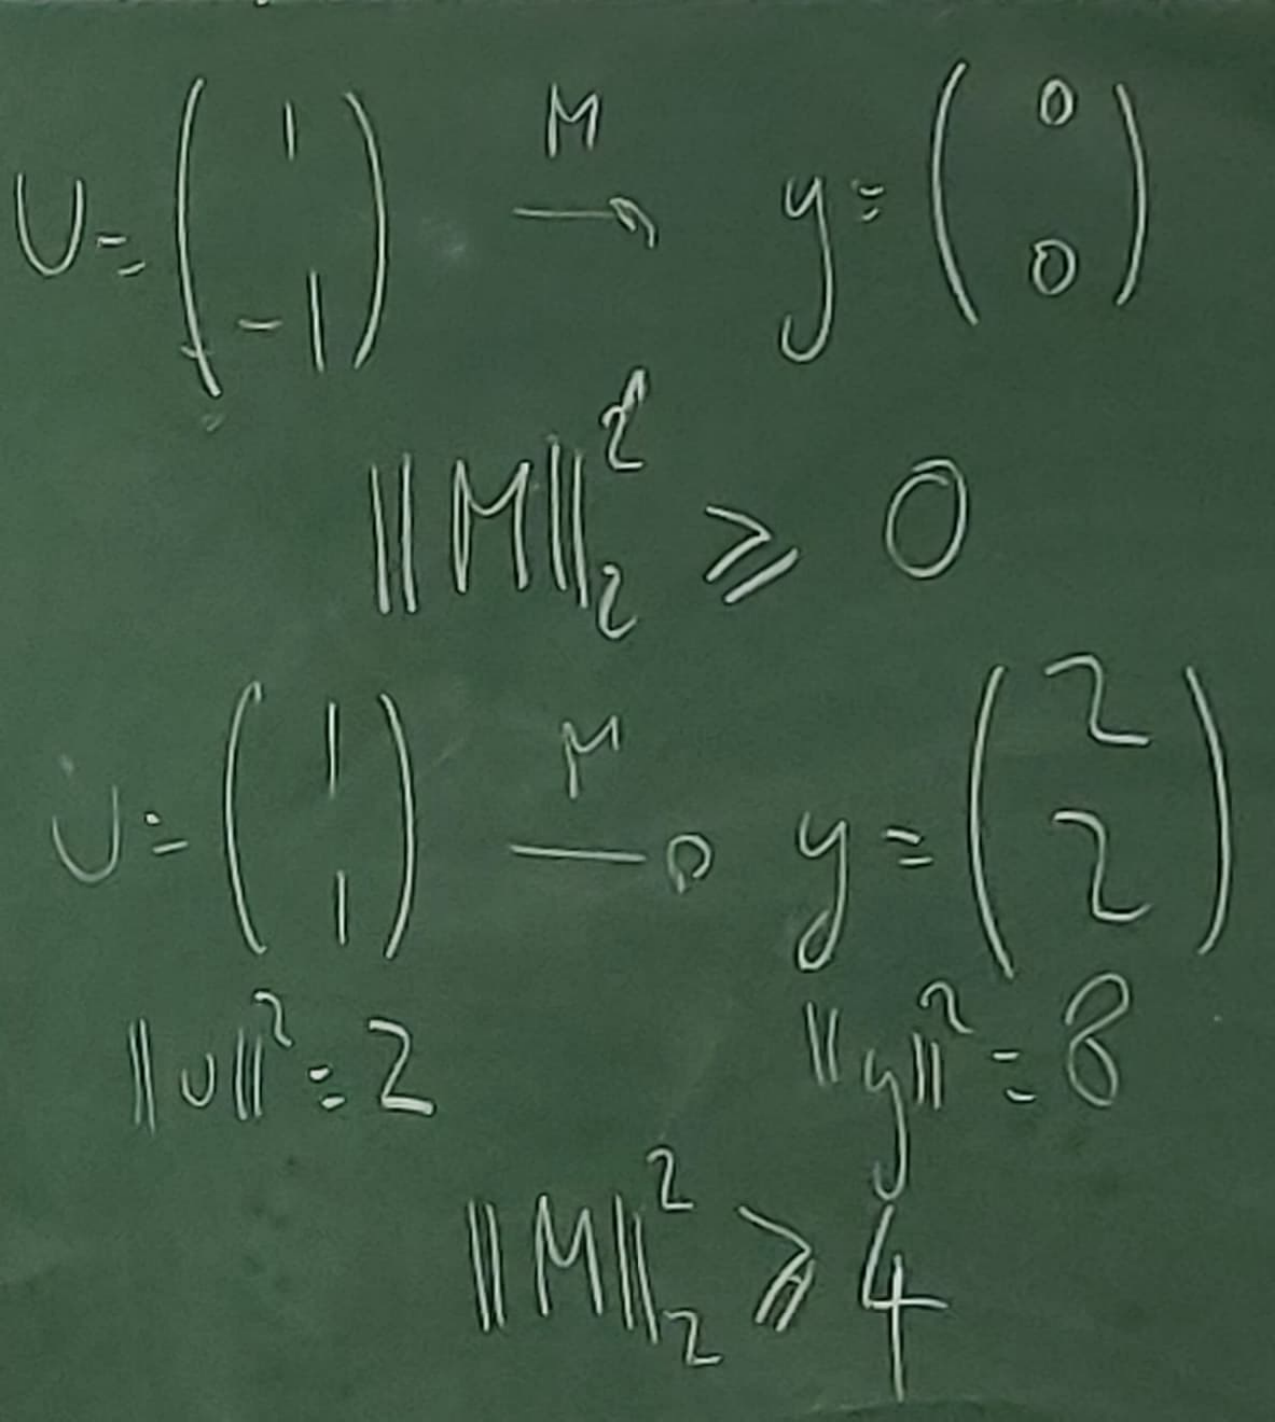 U = ( 1 -1 ) M → y = ( 0 0 )
||M||₂² ⩾ 0
U = ( 1 1 ) M → y = ( 2 2 )
||U||² = 2 ||y||² = 8
||M||₂² ⩾ 4